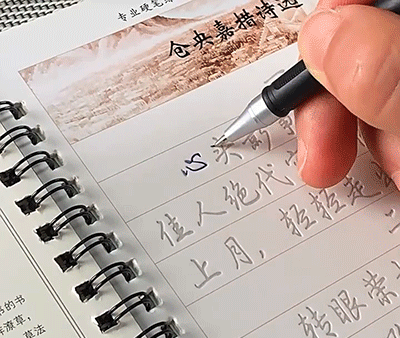 专业硬笔
仓央嘉措诗选
心头影
佳人绝代
上月，轻轻走
转眼荣
的书
潦草，
草法